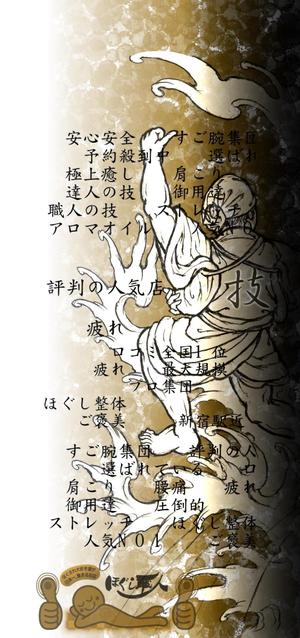 安心安全 すご腕集団
予約殺到中 選ばれ
極上癒し 肩こり
達人の技 御用達
職人の技 ストレッチ
アロマオイル
評判の人気店
技
疲れ
口コミ全国1位
疲れ 最大規模
プロ集団
ほぐし整体
ご褒美 新宿駅近
すご腕集団 評判の人
選ばれている 口
肩こり 腰痛 疲れ
御用達 圧倒的
ストレッチ ほぐし整体
人気NO1 ご褒美
ほぐし軍人